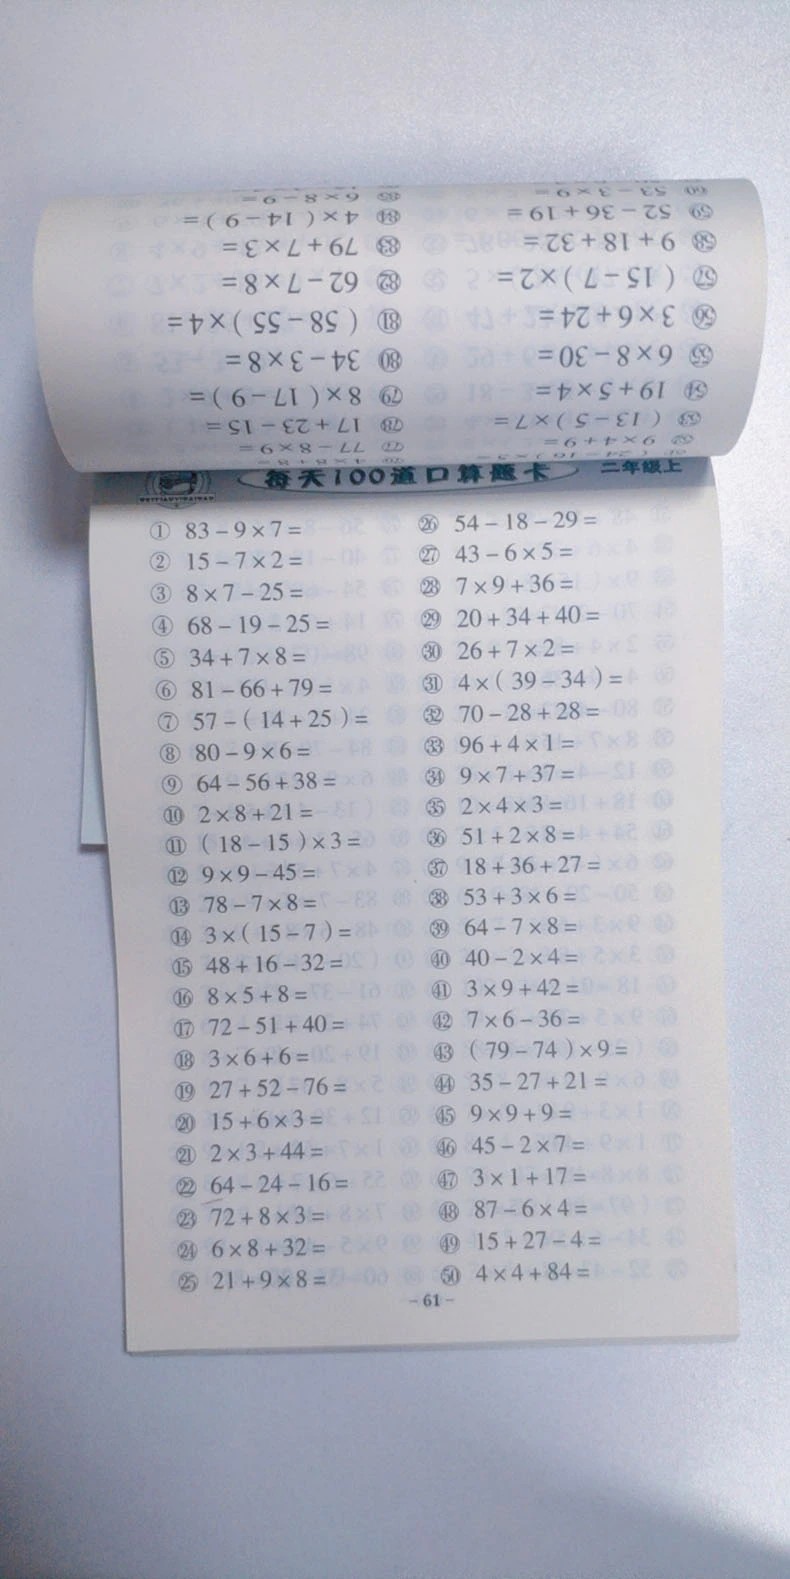 每天100道口算题卡 二年级上
① 83-9×7=
② 15-7×2=
③ 8×7-25=
④ 68-19-25=
⑤ 34+7×8=
⑥ 81-66+79=
⑦ 57-(14+25)=
⑧ 80-9×6=
⑨ 64-56+38=
⑩ 2×8+21=
⑪ (18-15)×3=
⑫ 9×9-45=
⑬ 78-7×8=
⑭ 3×(15-7)=
⑮ 48+16-32=
⑯ 8×5+8=
⑰ 72-51+40=
⑱ 3×6+6=
⑲ 27+52-76=
⑳ 15+6×3=
㉑ 2×3+44=
㉒ 64-24-16=
㉓ 72+8×3=
㉔ 6×8+32=
㉕ 21+9×8=
㉖ 54-18-29=
㉗ 43-6×5=
㉘ 7×9+36=
㉙ 20+34+40=
㉚ 26+7×2=
㉛ 4×(39-34)=
㉜ 70-28+28=
㉝ 96+4×1=
㉞ 9×7+37=
㉟ 2×4×3=
㊱ 51+2×8=
㊲ 18+36+27=
㊳ 53+3×6=
㊴ 64-7×8=
㊵ 40-2×4=
㊶ 3×9+42=
㊷ 7×6-36=
㊸ (79-74)×9=
㊹ 35-27+21=
㊺ 9×9+9=
㊻ 45-2×7=
㊼ 3×1+17=
㊽ 87-6×4=
㊾ 15+27-4=
㊿ 4×4+84=
-61-
52 9×4+9=
53 (13-5)×7=
54 19+5×4=
55 6×8-30=
56 3×6+24=
57 (15-7)×2=
58 9+18+32=
59 52-36+19=
60 53-3×9=
77 77-8×9=
78 17+23-15=
79 8×(17-9)=
80 34-3×8=
81 (58-55)×4=
82 62-7×8=
83 79+7×3=
84 4×(14-9)=
85 6×8-9=